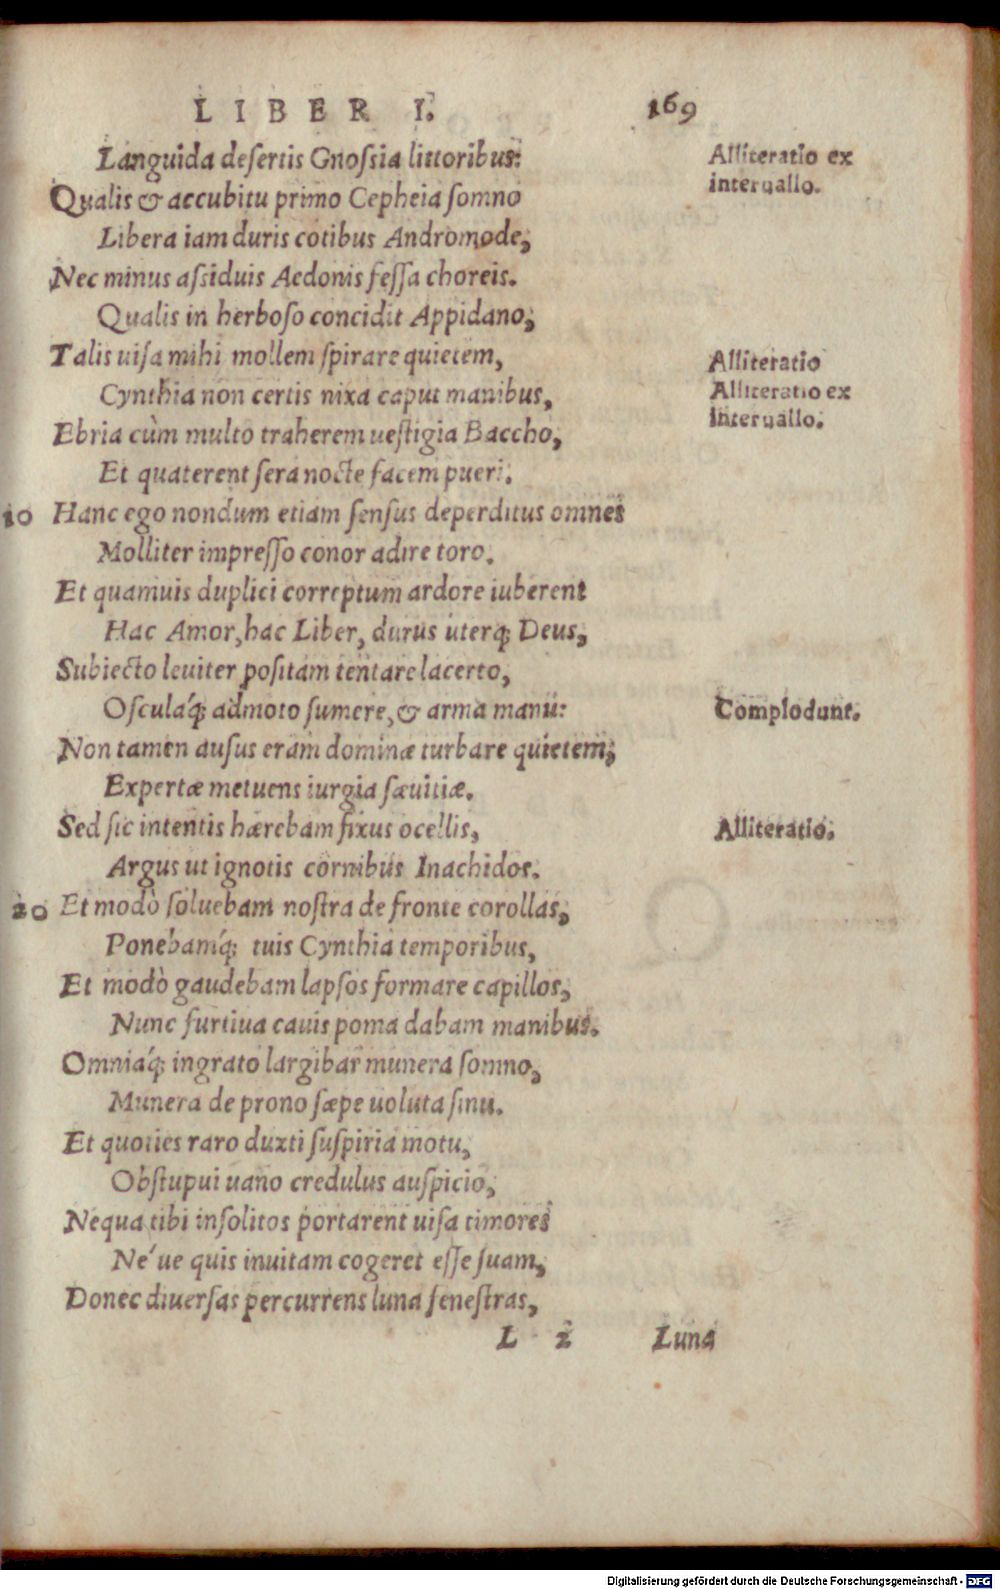 LIBER I. 169
Languida desertis Gnossia littoribus:
Alliteratio ex
interuallo.
Qualis & accubitu primo Cepheia somno
Libera iam duris cotibus Andromode,
Nec minus assiduis Aedonis fessa choreis.
Qualis in herboso concidit Appidano,
Talis uisa mihi mollem spirare quietem,
Alliteratio
Cynthia non certis nixa caput manibus,
Alliteratio ex
interuallo.
Ebria cùm multo traherem uestigia Baccho,
Et quaterent sera nocte facem pueri.
10 Hanc ego nondum etiam sensus deperditus omnes
Molliter impresso conor adire toro.
Et quamuis duplici correptum ardore iuberent
Hac Amor, hac Liber, durus uterq; Deus,
Subiecto leuiter positam tentare lacerto,
Osculáq; admoto sumere, & arma manu:
Complodunt.
Non tamen ausus eram dominæ turbare quietem,
Expertæ metuens iurgia sæuitiæ.
Sed sic intentis hærebam fixus ocellis,
Alliteratio.
Argus ut ignotis cornibus Inachidos.
20 Et modò soluebam nostra de fronte corollas,
Ponebamq́; tuis Cynthia temporibus,
Et modò gaudebam lapsos formare capillos,
Nunc furtiua cauis poma dabam manibus.
Omniáq; ingrato largibar munera somno,
Munera de prono sæpe uoluta sinu.
Et quoties raro duxti suspiria motu,
Obstupui uano credulus auspicio,
Nequa tibi insolitos portarent uisa timores
Ne´ue quis inuitam cogeret esse suam,
Donec diuersas percurrens luna fenestras,
L 2 Luna
Digitalisierung gefördert durch die Deutsche Forschungsgemeinschaft - DFG